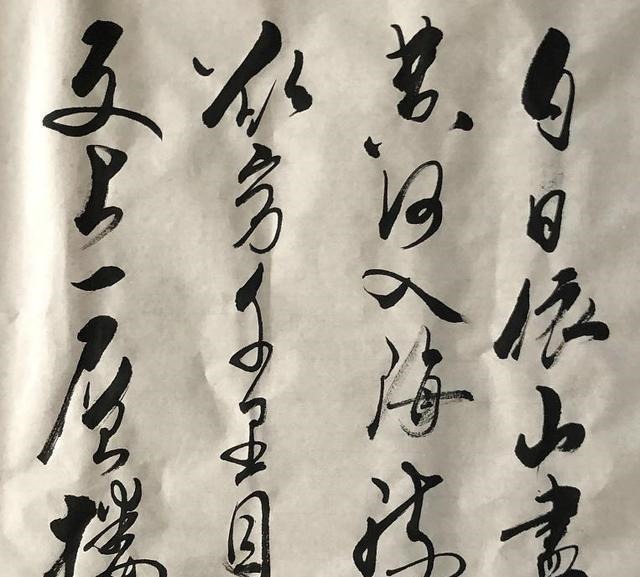 白日依山盡
黄河入海流
欲穷千里目
更上一层楼